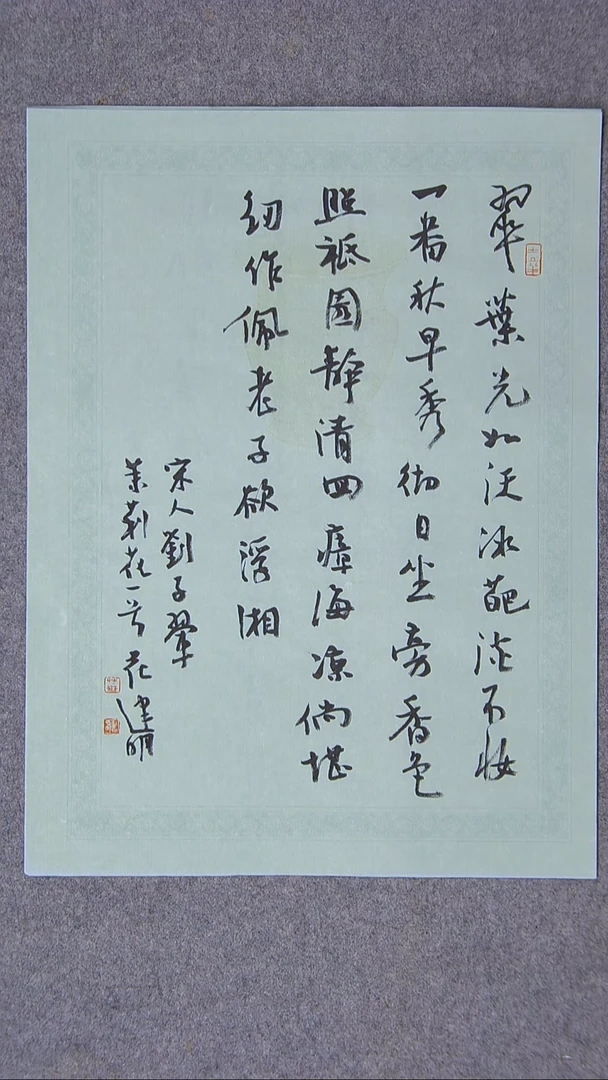 翠葉光如沃冰葩淡不妝
一番秋早秀彻日坐旁香色
照祗園静清回瘴海凉倘堪
紉作佩老子欲浮湘
宋人劉子翬
茉莉花一首 建明